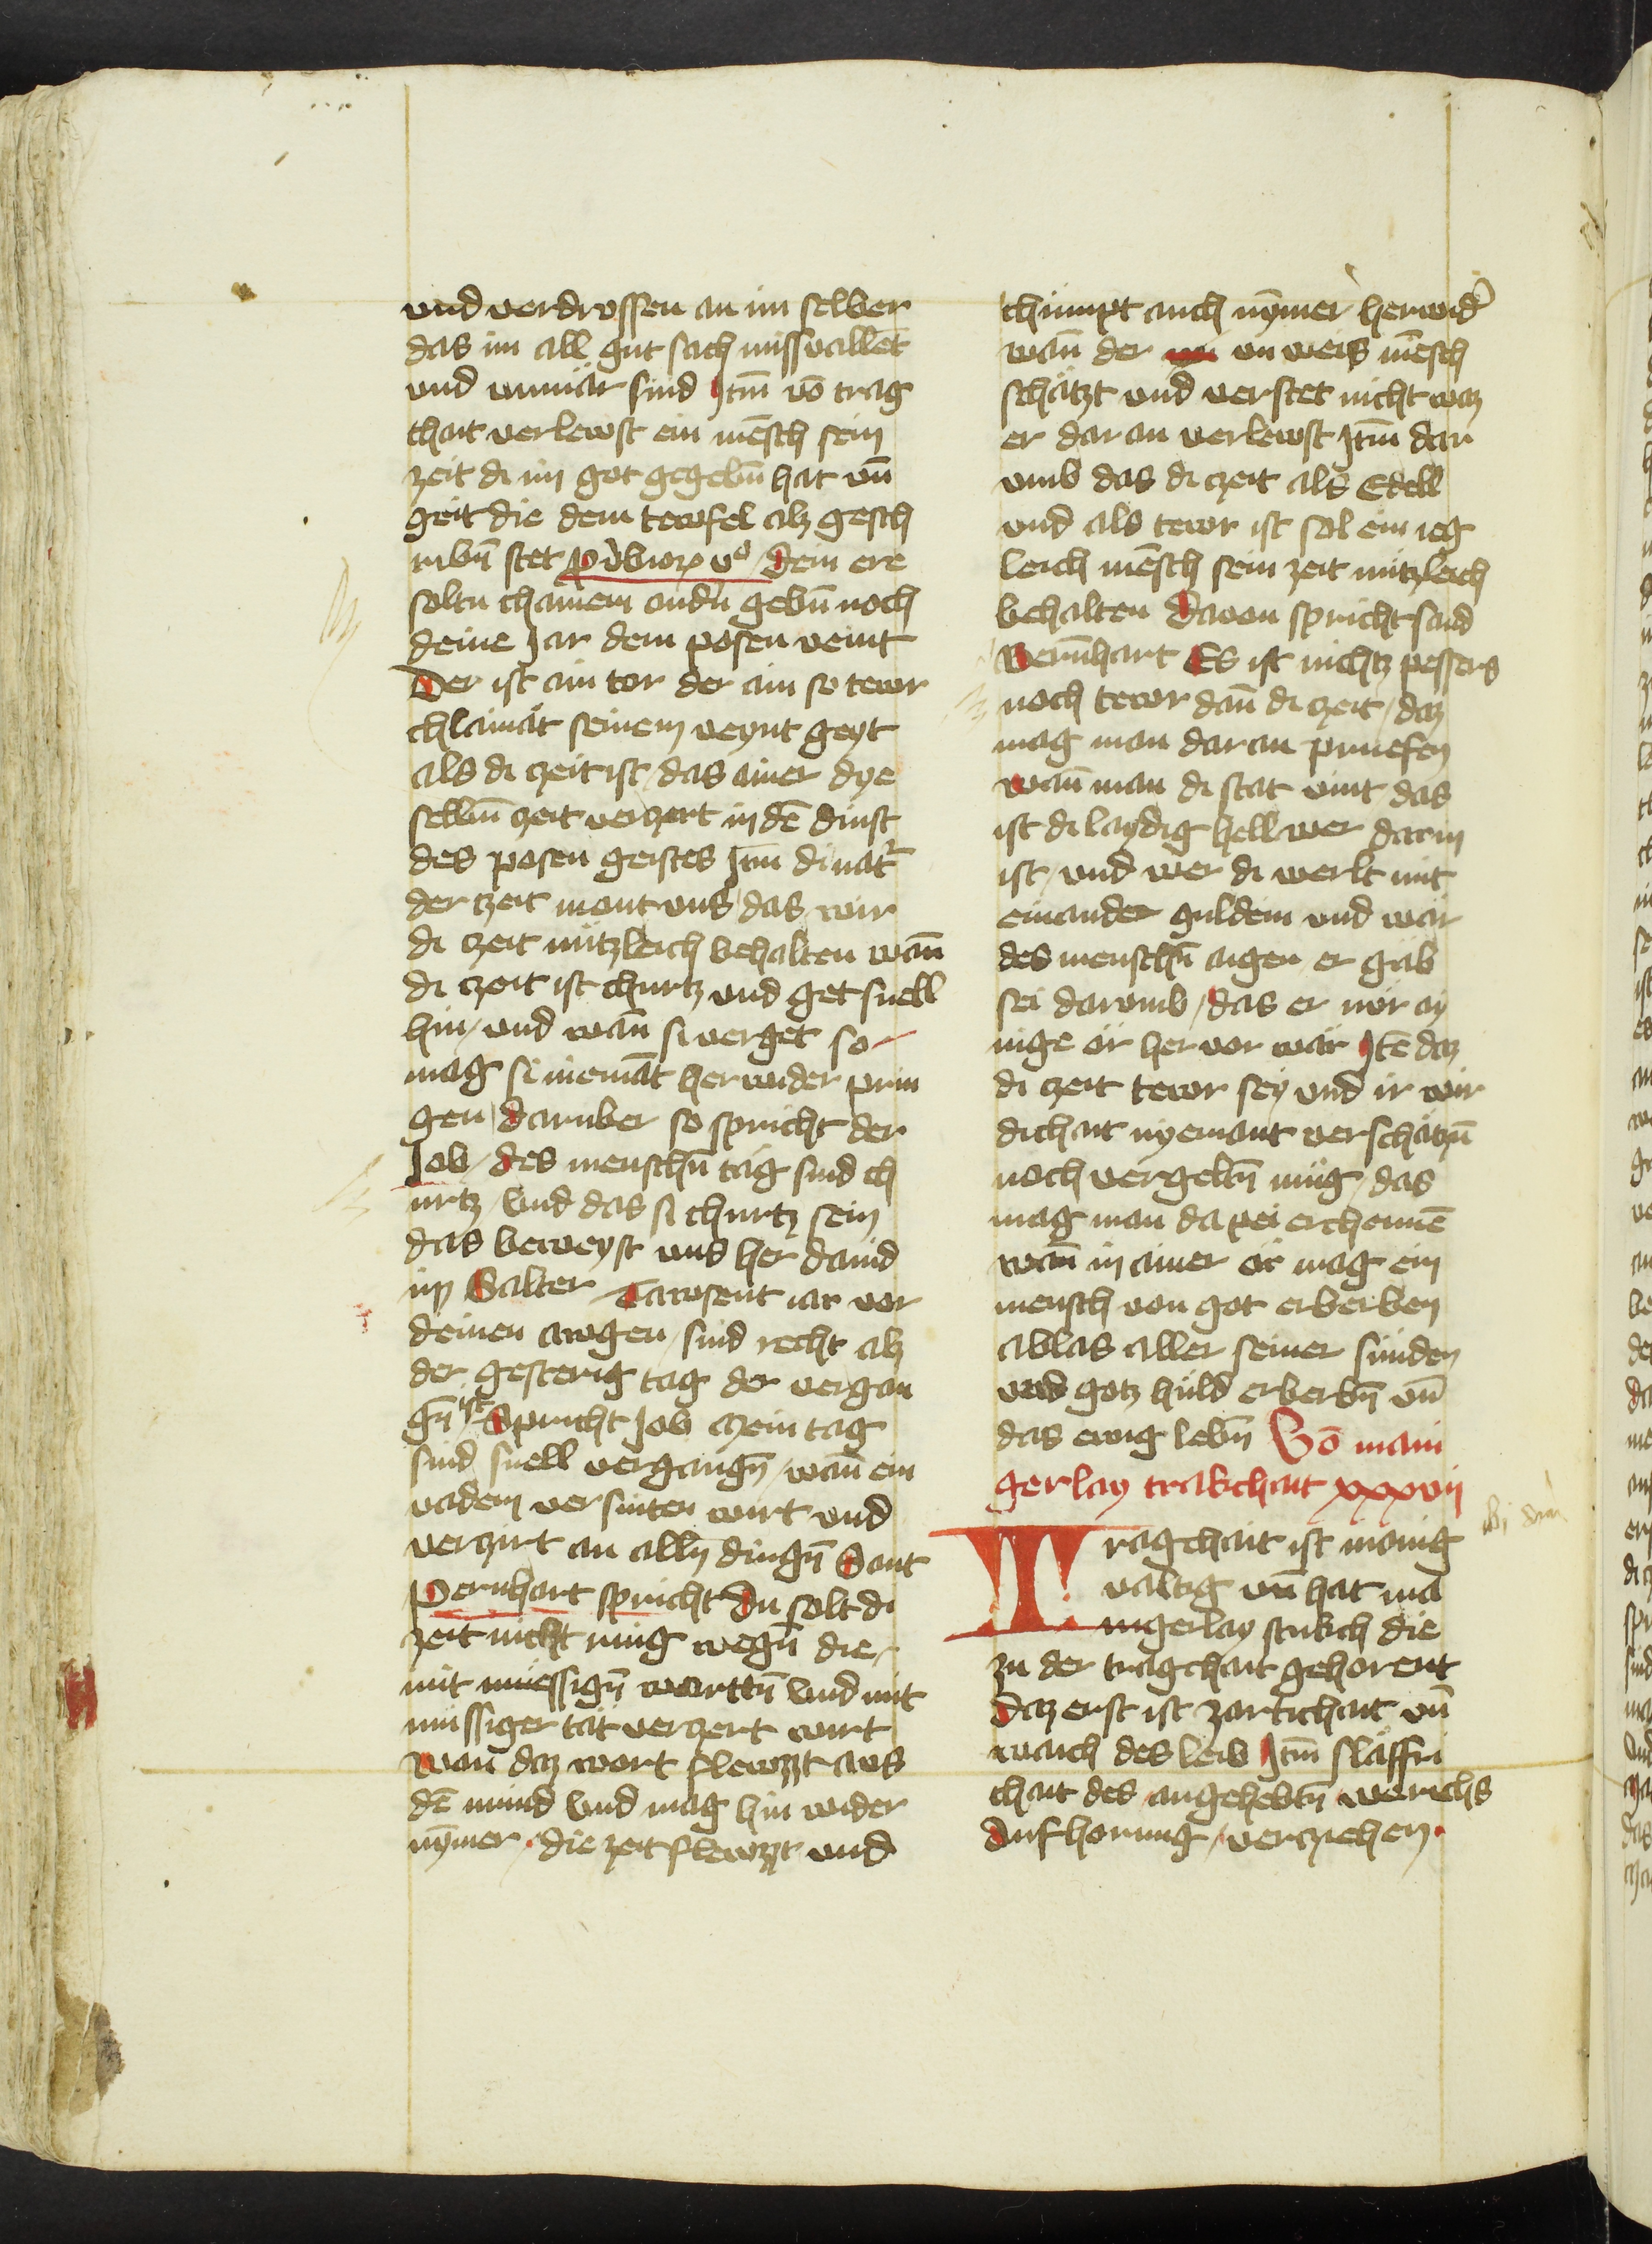 und verdrossen an im selber
das im all gut sach missvallēt
und unmär sind Itm̄ vō trag
chait verlewst ein mēsch sein
zeit di im got gegebn̄ hat vn̄
geit die dem tewfel alz gesch
ribn̄ stet ꝓv̉bioꝝ vᵒ dein ere
soltu chainem andn̉ gebn̄ noch
deine Jar dem posen veint
Der ist ain tor der ain so tewr
chlainät seinem veynt geyt
als di zeit ist / das ainer dye
selbm̄ zeit verzert in dē dinst
des posen geistes Itm̄ di nat̉
der zeit mont uns das wir
di zeit nützleich behalten wan̄
di zeit ist churtz und get snell
hin / und wan̄ si verget so
mag si niemāt herwider prin
gen / daruber so spricht der
Job / des menschn̄ täg sind ch
urtz / Und das si churtz sein
das beweyst uns her dauid
im Salter Tawsent iar vor
deinen awgen / sind recht alz
der gesterig tag der vergan
gn̄ ist Spricht Job mein tag
sind snell vergangn̄ / wan̄ ein
vadem versniten wirt und
verzirt an alln̄ dingn̄ Sant
Pernhart spricht Du solt di
zeit nicht ring wegn̄ die
mit müessign̄ wortn̄ Und mit
müssiger tät verzert wirt
Wan̄ daz wort flewzzt aus
dē mund Und mag hin wider
nȳmer · die zeit flewzzt und
chümpt auch nȳmer herwid̉
wan̄ der un weis mēsch
schätzt und verstet nicht waz
er dar an verlewst Itm̄ dar
umb das di zeit als Edell
und als tewr ist sol ein ieg
leich mēsch sein zeit nützleich
behalten Dauon spricht sand
Bernhart Es ist nichtz pessers
noch tewr dan̄ di zeit / daz
mag man dar an pruefen
wan̄ man di stat vint / das
ist di laydig hell wer darin
ist / und wer di werlt mit
einander guldein und wär
des menschn̄ aigen er gäb
sei darumb / das er nür ay
nige ör her vor wär Itē daz
di zeit tewr sey und ir wir
dichait nyemant verschätzn̄
noch vergeltn̄ müg / das
mag man da pei erchennē
wan̄ in ainer ör mag ein
mensch von got erberben
ablas aller seiner sünden
und gotz huld erberbn̄ vn̄
das ewig lebn̄ Vō mani
gerlay trakchait xxxvij
Tragchait ist manig
valtig vn̄ hat ma
nigerlay stukch die
zu der tragchait gehorent
Daz erst ist zartichait vn̄
waich des leib Itm̄ släffri
chait des angehebtn̄ werichs
Aufhorung / verziehen ·